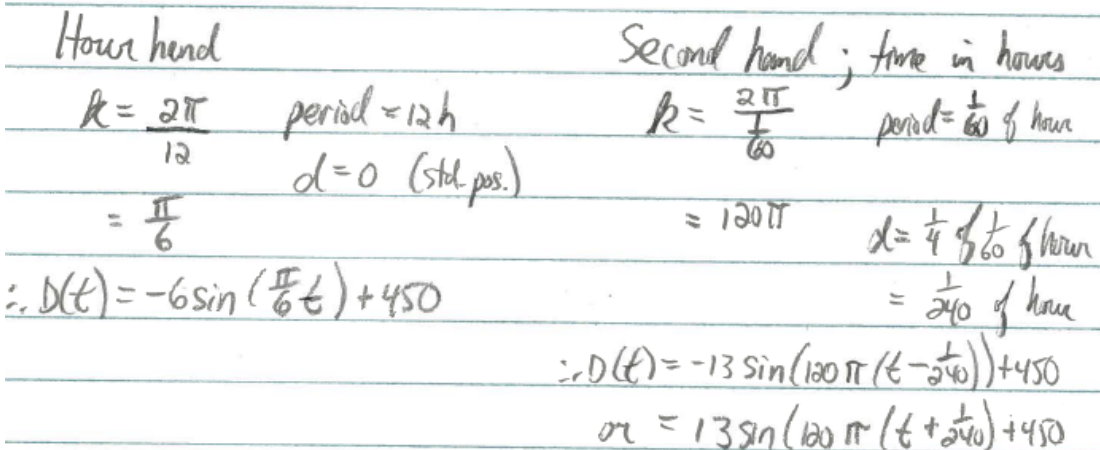 Hour hand
k = 2π/12 period = 12h
d = 0 (std. pos.)
= π/6
∴ D(t) = -6 sin (π/6 t) + 450
Second hand ; time in hours
k = 2π/(1/60) period = 1/60 of hour
= 120π d = 1/4 of 1/60 of hour
= 1/240 of hour
∴ D(t) = -13 sin(120π(t - 1/240)) + 450
or = 13 sin(120π(t + 1/240) + 450